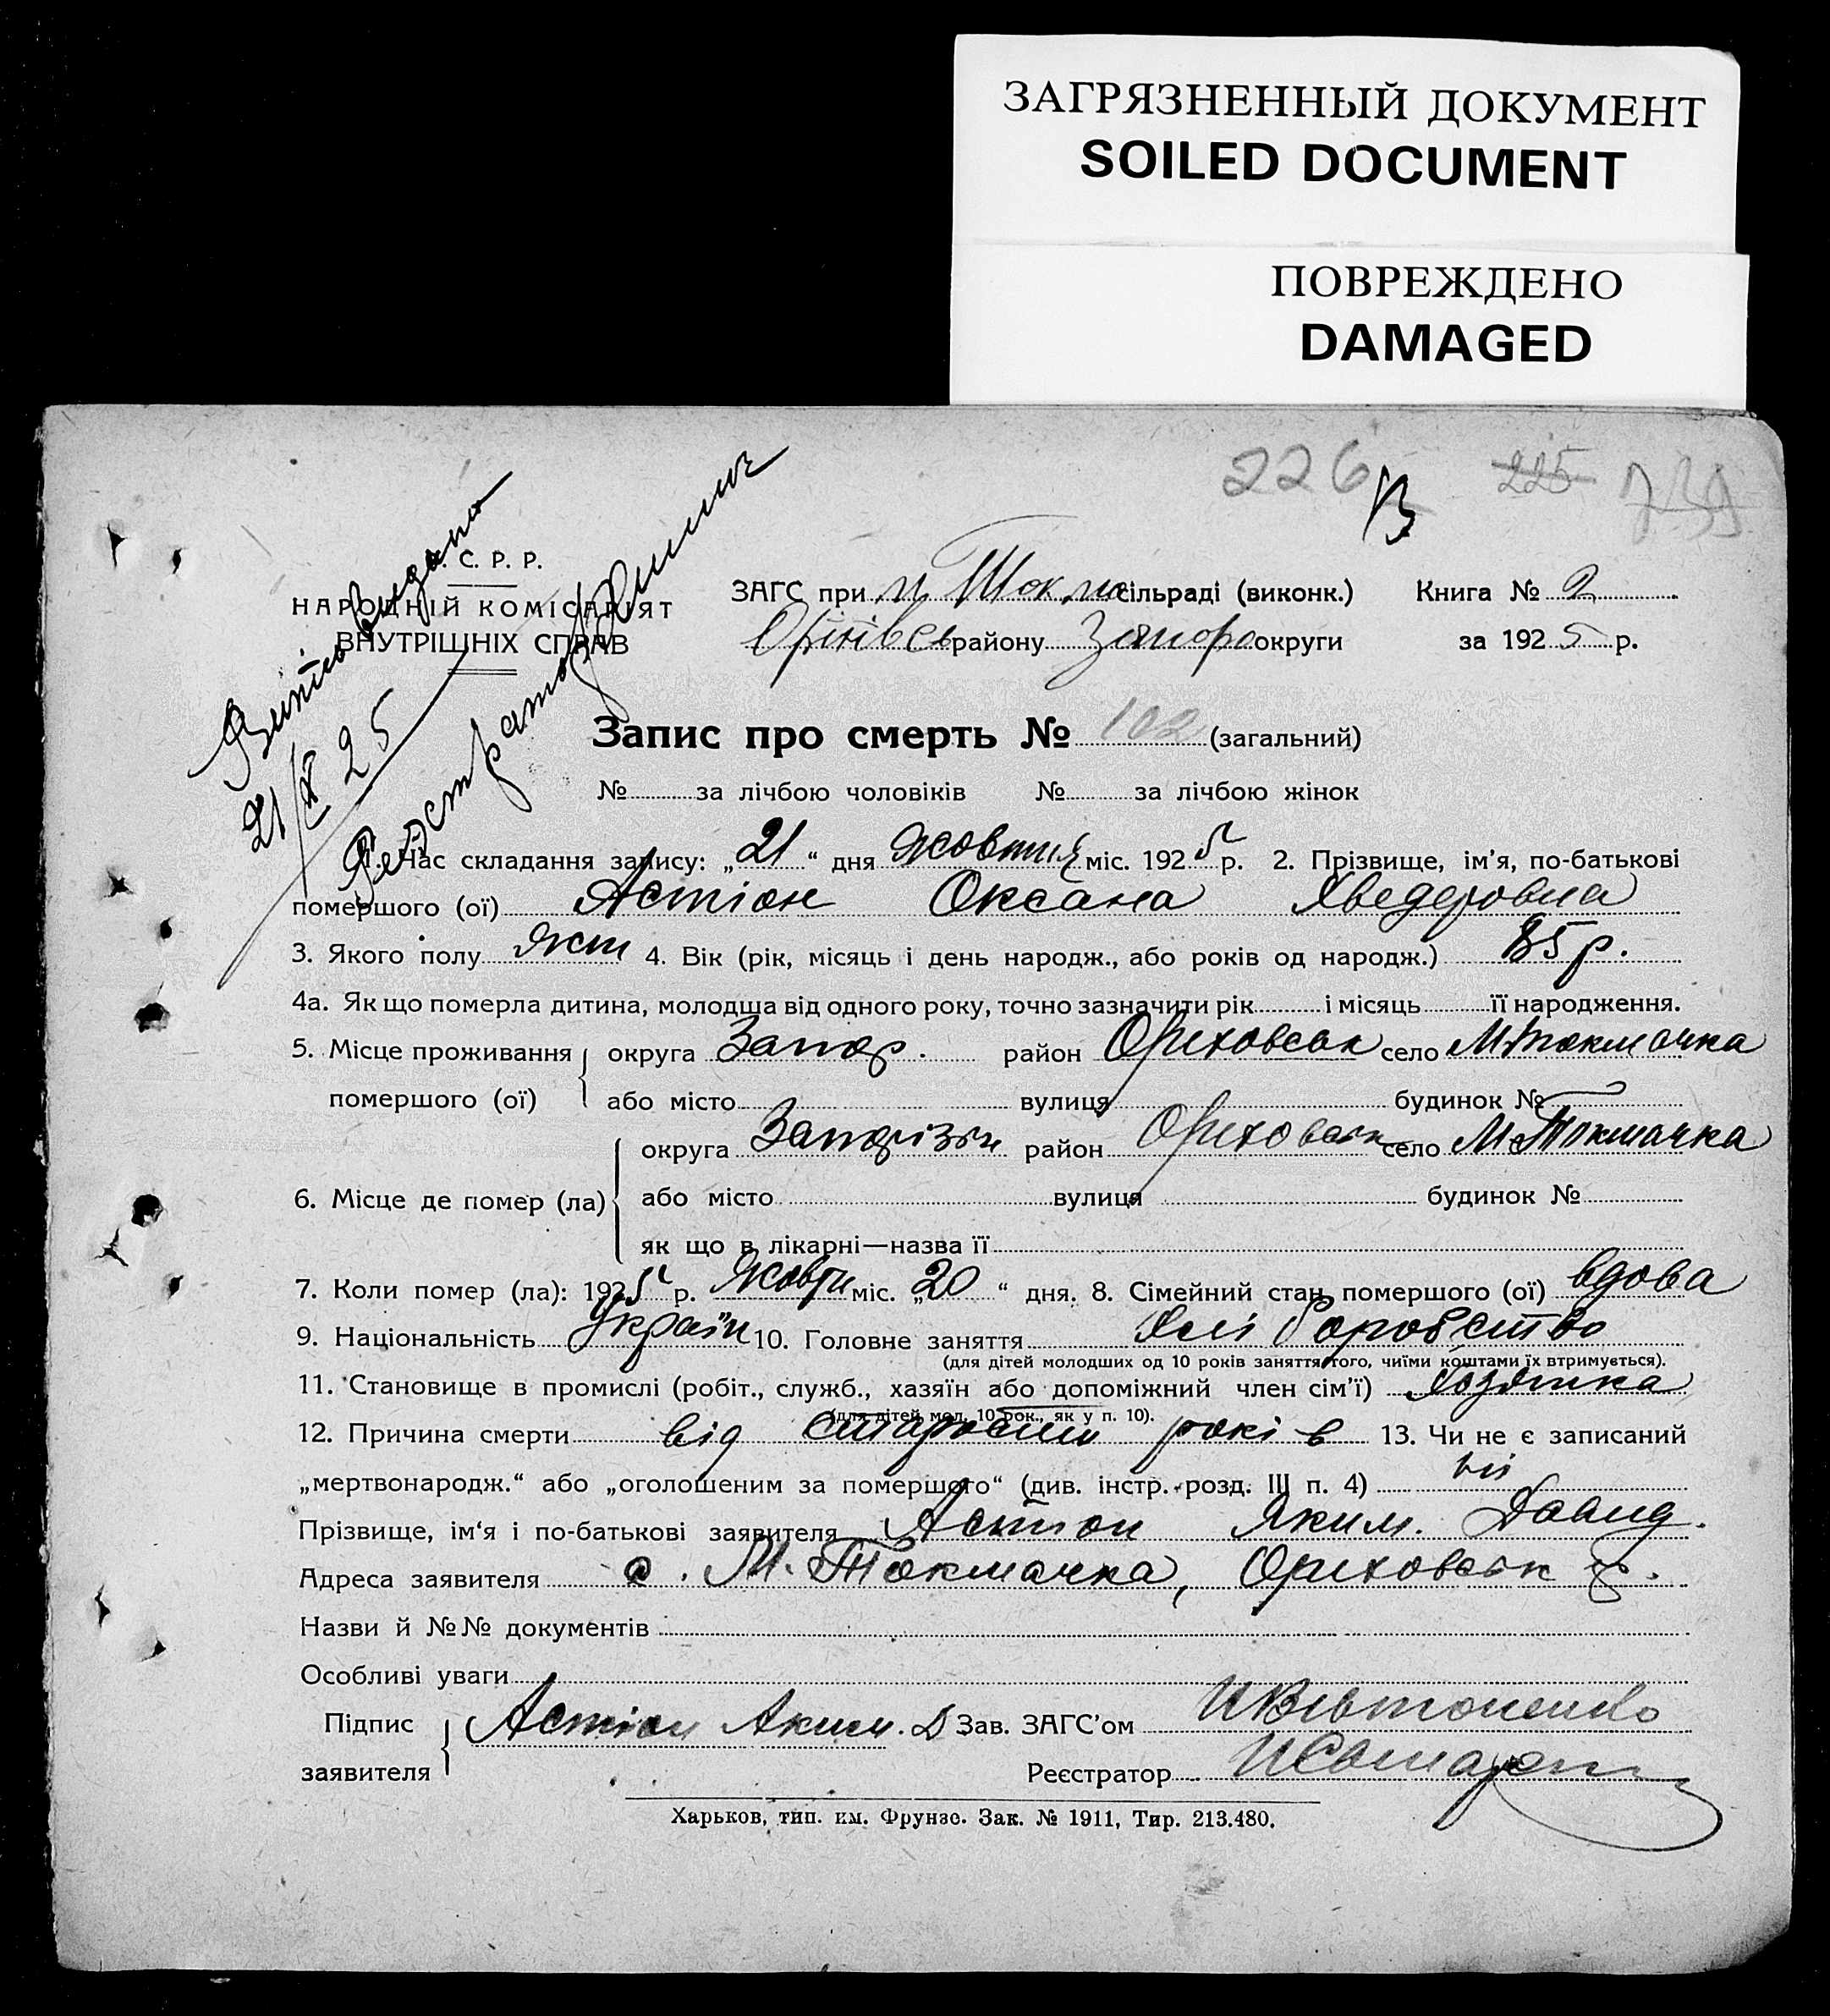 ЗАГРЯЗНЕННЫЙ ДОКУМЕНТ
SOILED DOCUMENT
ПОВРЕЖДЕНО
DAMAGED
226 225 739
С. Р. Р.
НАРОДНІЙ КОМІСАРІЯТ
ВНУТРІШНІХ СПРАВ
Витяг видано
21/X 25
Реєстратор
ЗАГС при М Токма сільраді (виконк.) Книга № 2
Оріхівсь району Запор округи за 1925 р.
Запис про смерть № 102 (загальний)
№ за лічбою чоловіків № за лічбою жінок
1. Час складання запису: „21“ дня жовтня міс. 1925 р. 2. Прізвище, ім’я, по-батькові
помершого (ої) Астіон Оксана Хведеровна
3. Якого полу жіт 4. Вік (рік, місяць і день народж., або років од народж.) 85 р.
4а. Як що померла дитина, молодша від одного року, точно зазначити рік і місяць її народження.
5. Місце проживання округа Запор. район Ореховськ село М Токмачка
помершого (ої) або місто вулиця будинок №
округа Запорізьк район Ореховськ село М Токмачка
6. Місце де помер (ла) або місто вулиця будинок №
як що в лікарні—назва її
7. Коли помер (ла): 1925 р. Жовтн міс. „20“ дня. 8. Сімейний стан помершого (ої) вдова
9. Національність Україн 10. Головне заняття Хліборобство
(для дітей молодших од 10 років заняття того, чиїми коштами їх втримується).
11. Становище в промислі (робіт., служб., хазяїн або допоміжний член сім’ї) Хозяйка
(для дітей мол. 10 рок., як у п. 10).
12. Причина смерти від старости років 13. Чи не є записаний
„мертвонародж.“ або „оголошеним за помершого“ (див. інстр. розд. III п. 4) ні
Прізвище, ім‘я і по-батькові заявителя Астіон Яким. Давид.
Адреса заявителя с. М. Токмачка, Ореховськ р.
Назви й №№ документів
Особливі уваги
Підпис Астіон Аким. Д Зав. ЗАГС’ом
заявителя Реєстратор
Харьков, тип. им. Фрунзе. Зак. № 1911, Тир. 213.480.